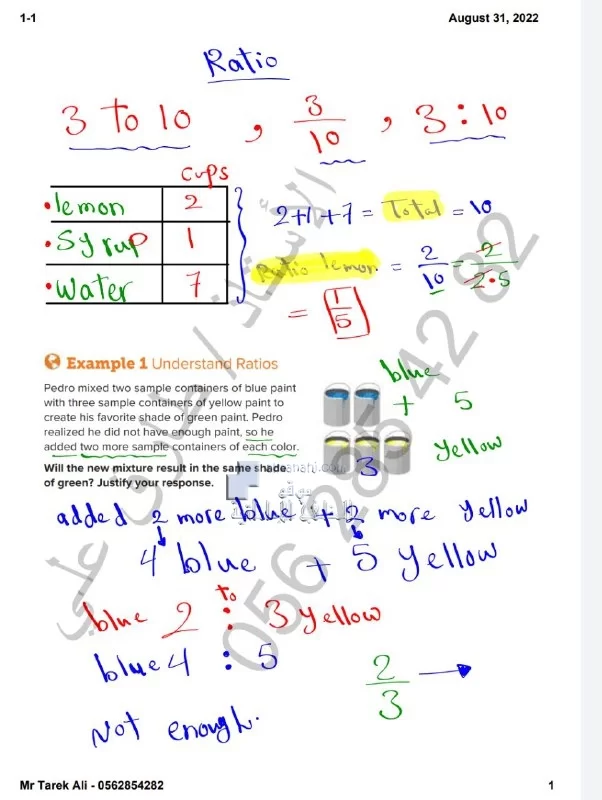 1-1 August 31, 2022
Ratio
3 to 10 , 3/10 , 3:10
cups
•lemon 2
•Syrup 1
•water 7
2+1+7 = Total = 10
Ratio lemon = 2/10 = 2/2•5
= 1/5
Example 1 Understand Ratios
Pedro mixed two sample containers of blue paint
with three sample containers of yellow paint to
create his favorite shade of green paint. Pedro
realized he did not have enough paint, so he
added two more sample containers of each color.
Will the new mixture result in the same shade
of green? Justify your response.
blue
+ 5
3 yellow
added 2 more blue + 2 more yellow
4 blue + 5 yellow
to
blue 2 : 3 yellow
blue 4 : 5
2/3
Not enough.
الأستاذ / طارق علي
056 285 42 82
Mr Tarek Ali - 0562854282 1